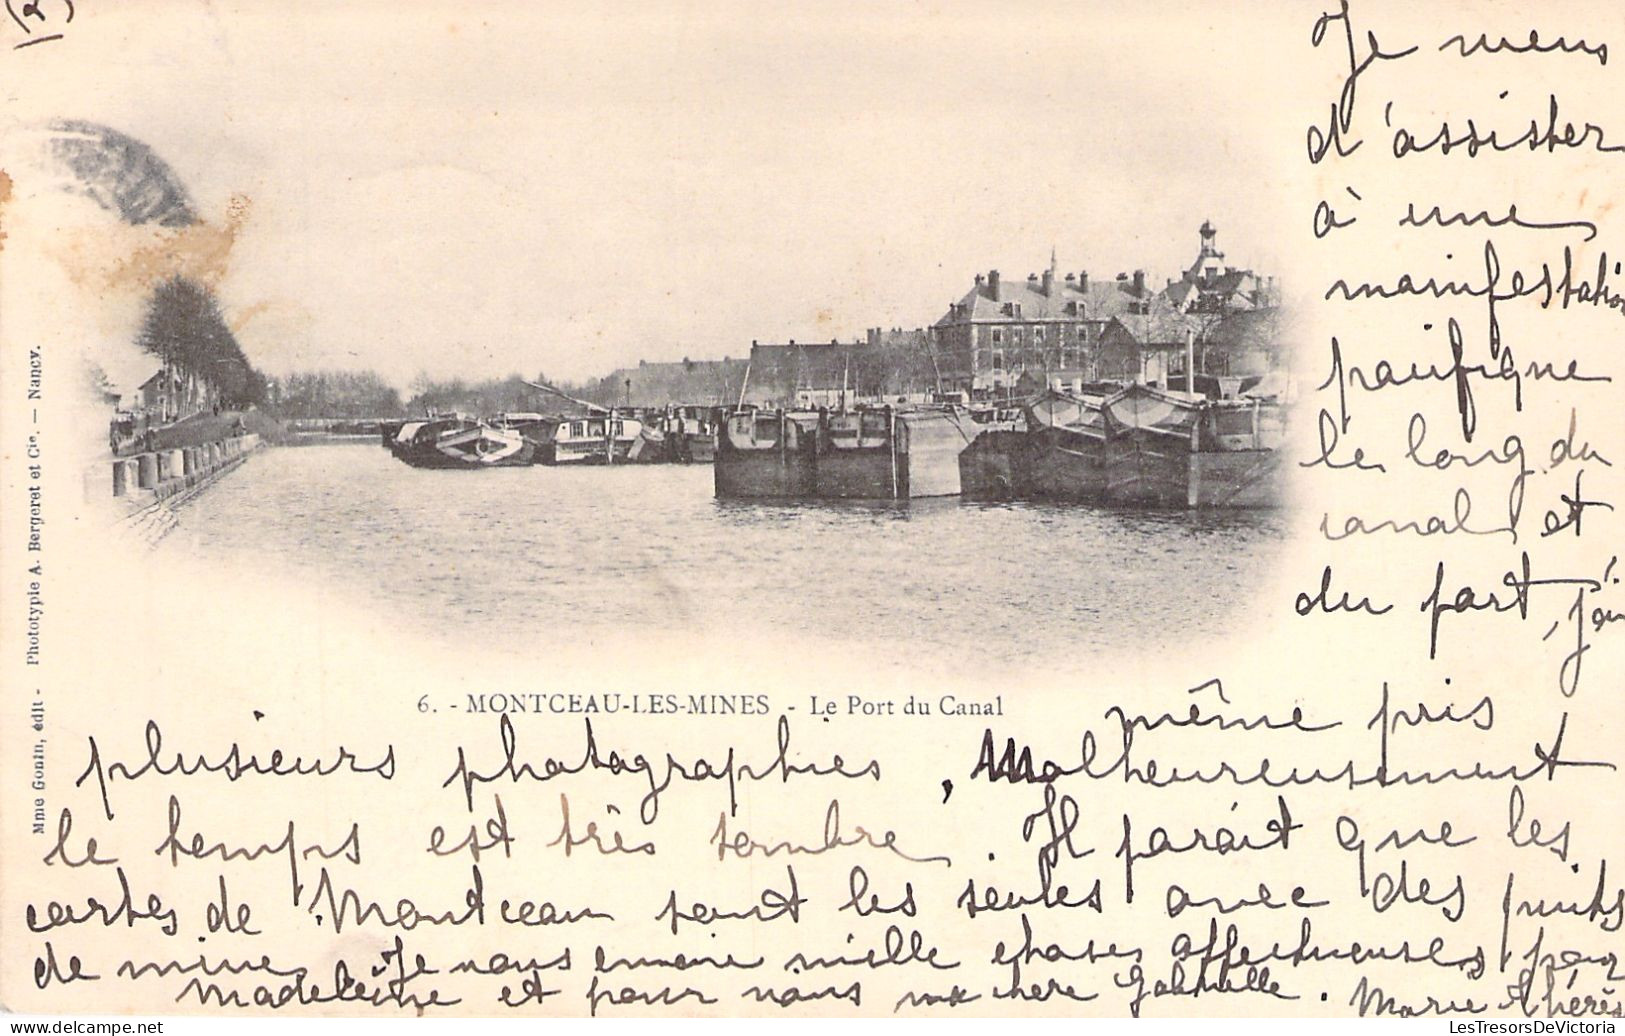 (2)
Je viens
d'assister
à une
manifestation
pacifique
le long du
canal et
du port, j'ai
même pris
plusieurs photographies, Malheureusement
le temps est très sombre. Il parait que les
cartes de Montceau sont les seules avec des puits
de mine. Je vous envoie mille choses affectueuses pour
Madeleine et pour vous ma chère Gabrielle. Marie Thérès
6. - MONTCEAU-LES-MINES - Le Port du Canal
Mme Gonin, édit - Phototypie A. Bergeret et Cie. — Nancy.
LesTresorsDeVictoria